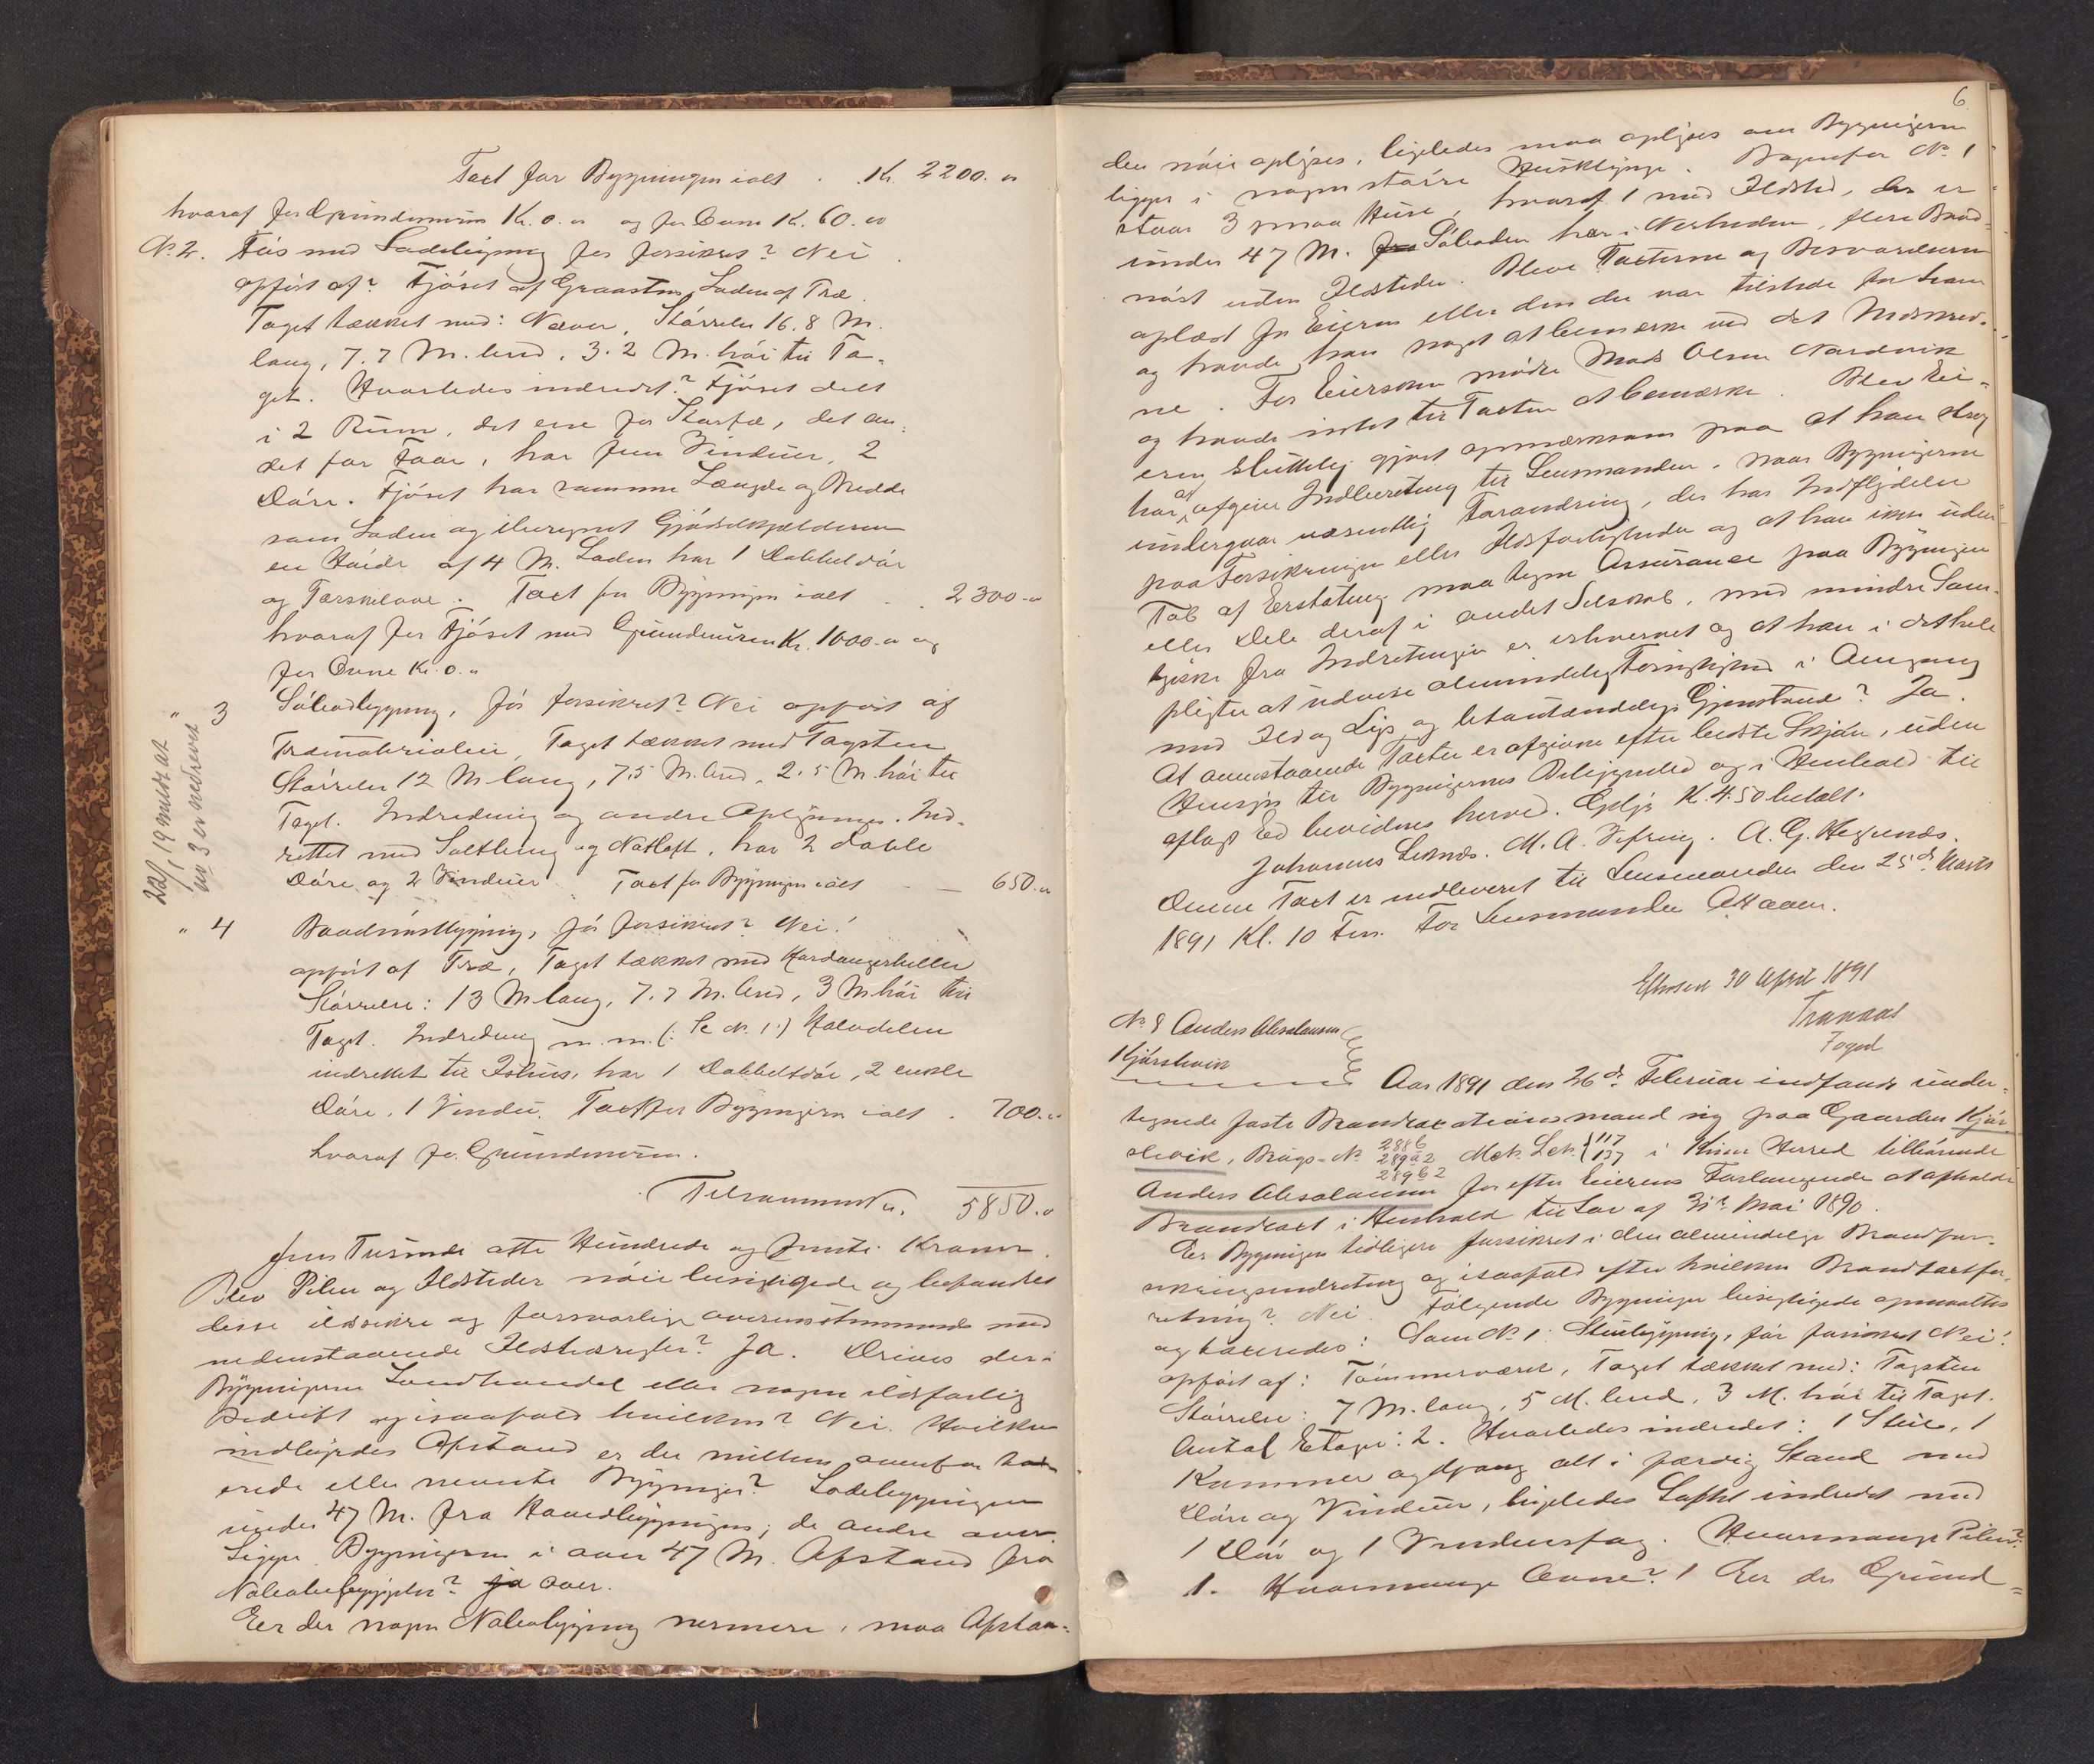 Taxt for Bygningen ialt . Kr. 2200. "
hvoraf for Grundmuren Kr. 0. " og for Ovne Kr. 60. "
No 2. Fjøs med Ladebygning før forsikret? Nei
opført af? Fjøset af Graasten, Laden af Træ.
Taget tækket med: Næver, Størrelse 16.8 M.
lang, 7.7 M. bred, 3.2 M. høi til Ta-
get. Hvorledes indredet? Fjøset delt
i 2 Rum, det ene for Storfæ, det an-
det for Faar, har fem Vinduer, 2
Døre. Fjøset har samme Længde og Bredde
som Laden og iberegnet Gjødselkjælderen
en Høide af 4 M. Laden har 1 Dobbeltdør
og Tærskelaave. Taxt for Bygningen ialt . . 2300. "
hvoraf for Fjøset med Grundmuren Kr. 1000. " og
for Ovne Kr. 0. "
" 3 Søbodbygning, før forsikret? Nei opført af
Træmaterialier, Taget tækket med Tagsten
Størrelse 12 M lang, 7.5 M. bred, 2.5 M. høi til
Taget. Indredning og andre Oplysninger. Ind-
rettet med Saltbing og Notloft, har 2 doble
Døre og 2 Vinduer. Taxt for Bygningen ialt - - 650. "
22/1 19 meldt at
no 3 er nedrevet
" 4 Baadnøstbygning, før forsikret? Nei!
opført af Træ, Taget tækket med Hardangerheller
Størrelse: 13 M lang, 7.7 M. bred, 3 M. høi til
Taget. Indredning m. m. (: Se No 1:) Halvdelen
indrettet til Ishus, har 1 Dobbeltdør, 2 enkle
Døre, 1 Vindu. Taxt for Bygningen ialt . 700. "
hvoraf for Grundmuren.
Tilsammen Kr. 5850. "
fem Tusinde otte Hundrede og femti Kroner.
Blev Piber og Ildsteder nøie besigtigede og befandtes
disse ildsikre og forsvarlige overensstemmende med
nedenstaaende Ildstedsregler? Ja. Drives der i
Bygningerne Landhandel eller nogen ildsfarlig
Bedrift og isaafald hvilken? Nei. Hvilken
indbyrdes Afstand er der mellem ovenfor tax-
erede eller nævnte Bygninger? Ladebygningen
under 47 M. fra Hovedbygningen; de andre over
Ligger Bygningerne i over 47 M. Afstand fra
Nabobebyggelse? ja over.
Eer der nogen Nabobygning nærmere, maa Afstan-
6
den nøie oplyses, ligeledes maa oplyses om Bygningerne
ligger i nogen større Husklynge. Bagenfor No 1
staar 3 smaa Huse, hvoraf 1 med Ildsted, der er
under 47 M. fra Søboden her i Nærheden, flere Baad-
nøst uden Ildsteder. Bleve Taxterne og Besvarelserne
oplæst for Eieren eller den der var tilstede for ham
og havde han noget at bemærke ved det Nedskrev-
ne. For Eiersken mødte Mads Olsen Nordvik
og havde intet til Taxten at bemærke. Blev Ei-
eren sluttelig gjort opmærksom paa at han strax
har at afgive Indberetning til Lensmanden, naar Bygningerne
undergaar væsentlig Forandring, der har Indflydelse
paa Forsikringen eller Ildsfarligheden og at han ikke uden
Tab af Erstatning maa tegne Assurance paa Bygningen
eller Dele deraf i andet Selskab, med mindre Sam-
tykke fra Indretningen er erhvervet og at han i det hele
pligter at udvise almindelig Forsigtighed i Omgang
med Ild og Lys og letantændelige Gjenstande? Ja.
At ovenstaaende Taxter er afgivne efter bedste Skjøn, uden
Hensyn til Bygningernes Beliggenhed og i Henhold til
aflagt Ed bevidnes herved. Gebyr K. 4.50 betalt.
Johannes Seknæs. M. A. Vefring. A. G. Hegrenæs.
Denne Taxt er indleveret til Lensmanden den 25de Marts
1891 Kl. 10 Fm. For Lensmanden
Efterset 30 April 1891
Foged
No 8 Anders Absalonsen
Kjørslevik
Aar 1891 den 26de Februar indfandt under-
tegnede faste Brandtaxationsmænd sig paa Gaarden Kjør-
slevik, Brugs-No 288 b 289 a 2 289 b 2 Mat. Løb. 117 137 i Kinn Herred tilhørende
Anders Absalonsen for efter Eierens Forlangende at afholde
Brandtaxt i Henhold til Lov af 31te Mai 1890.
Eer Bygningen tidligere forsikret i den almindelige Brandfor-
sikringsindretning og isaafald efter hvilken Brandtaxtfor-
retning? Nei. Følgende Bygninger besigtigede opmaaltes
og taxeredes: Som No 1: Stuebygning, før forsikret Nei!
opført af: Tømmerværk, Taget tækket med: Tagsten
Størrelse: 7 M. lang, 5 M. bred, 3 M. høi til Taget.
Antal Etager: 2. Hvorledes indredet: 1 Stue, 1
Kammer og Gang alt i færdig Stand med
Døre og Vinduer, ligeledes Loftet indredet med
1 Dør og 1 Vinduesfag. Hvormange Piber?
1. Hvormange Ovne? 1 Eer der Grund-